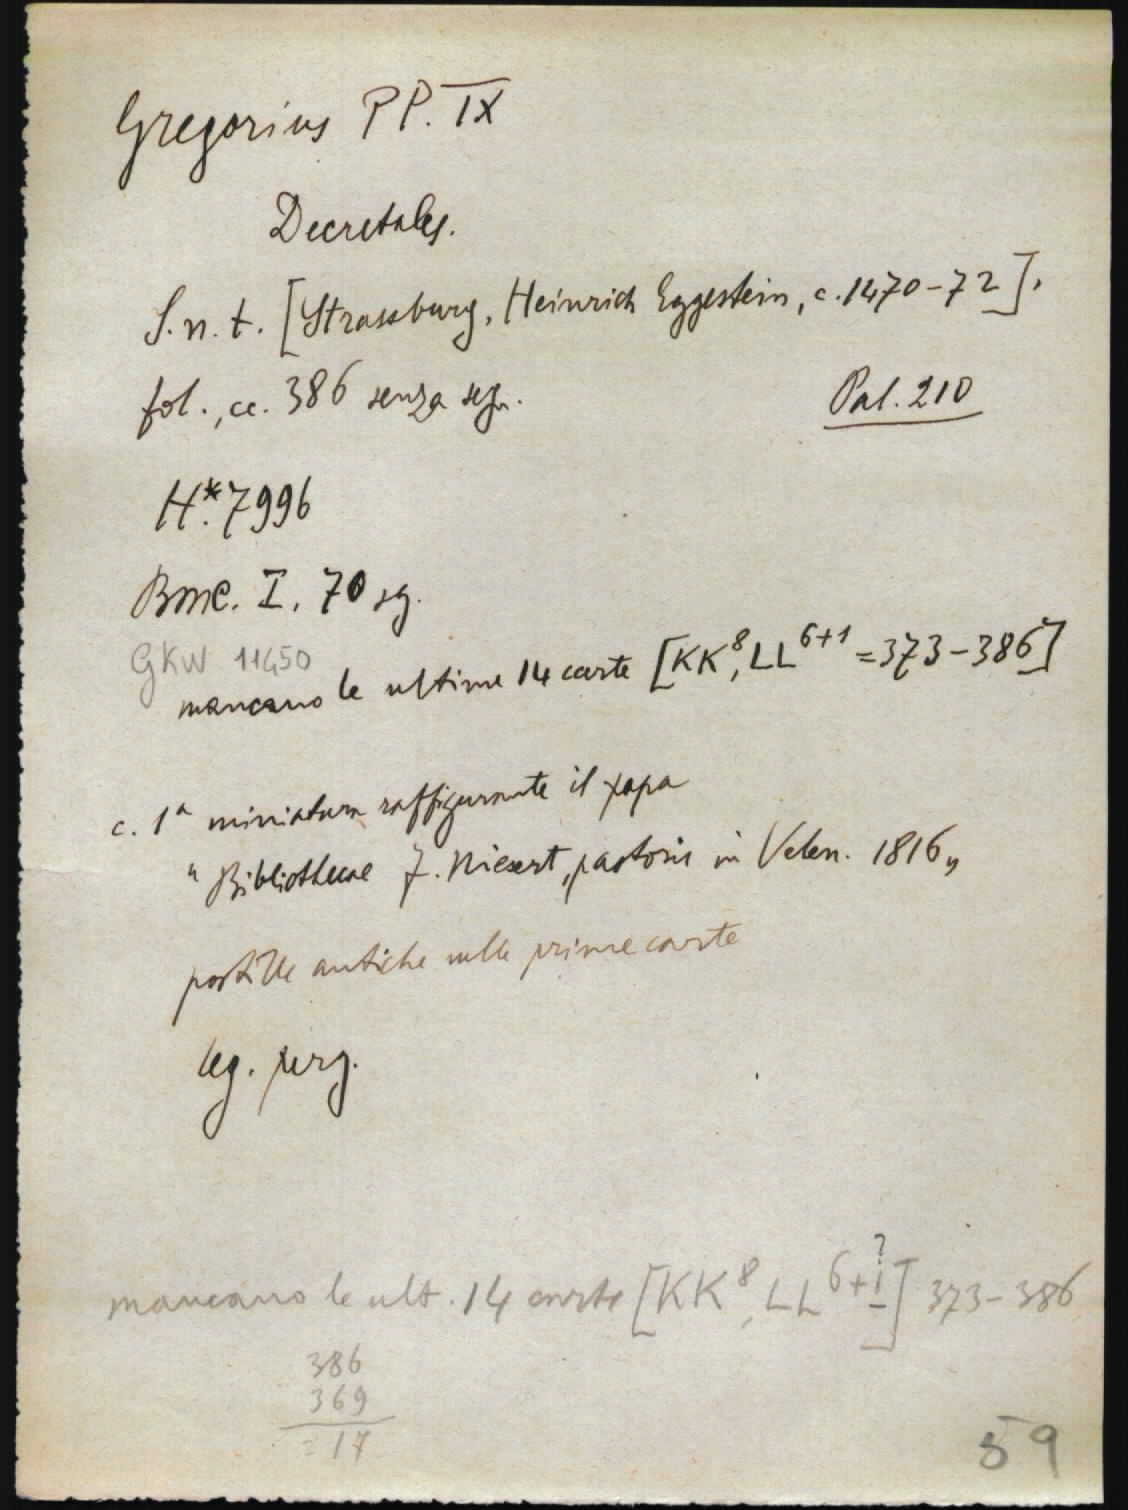 Gregorius PP. IX
Decretales.
S. n. t. [Strassburg, Heinrich Eggestein, c. 1470-72],
fol., cc. 386 senza segn.
Pal. 210
H*. 7996
BMC. I. 70 sg.
GKW 11450
mancano le ultime 14 carte [KK⁸, LL⁶⁺¹ = 373-386]
c. 1ª miniatura raffigurante il papa
"Bibliothecae J. Niesert, pastoris in Velen. 1816"
postille antiche sulle prime carte
leg. perg.
mancano le ult. 14 carte [KK⁸, LL⁶⁺¹?] 373-386
386
369
= 17
59